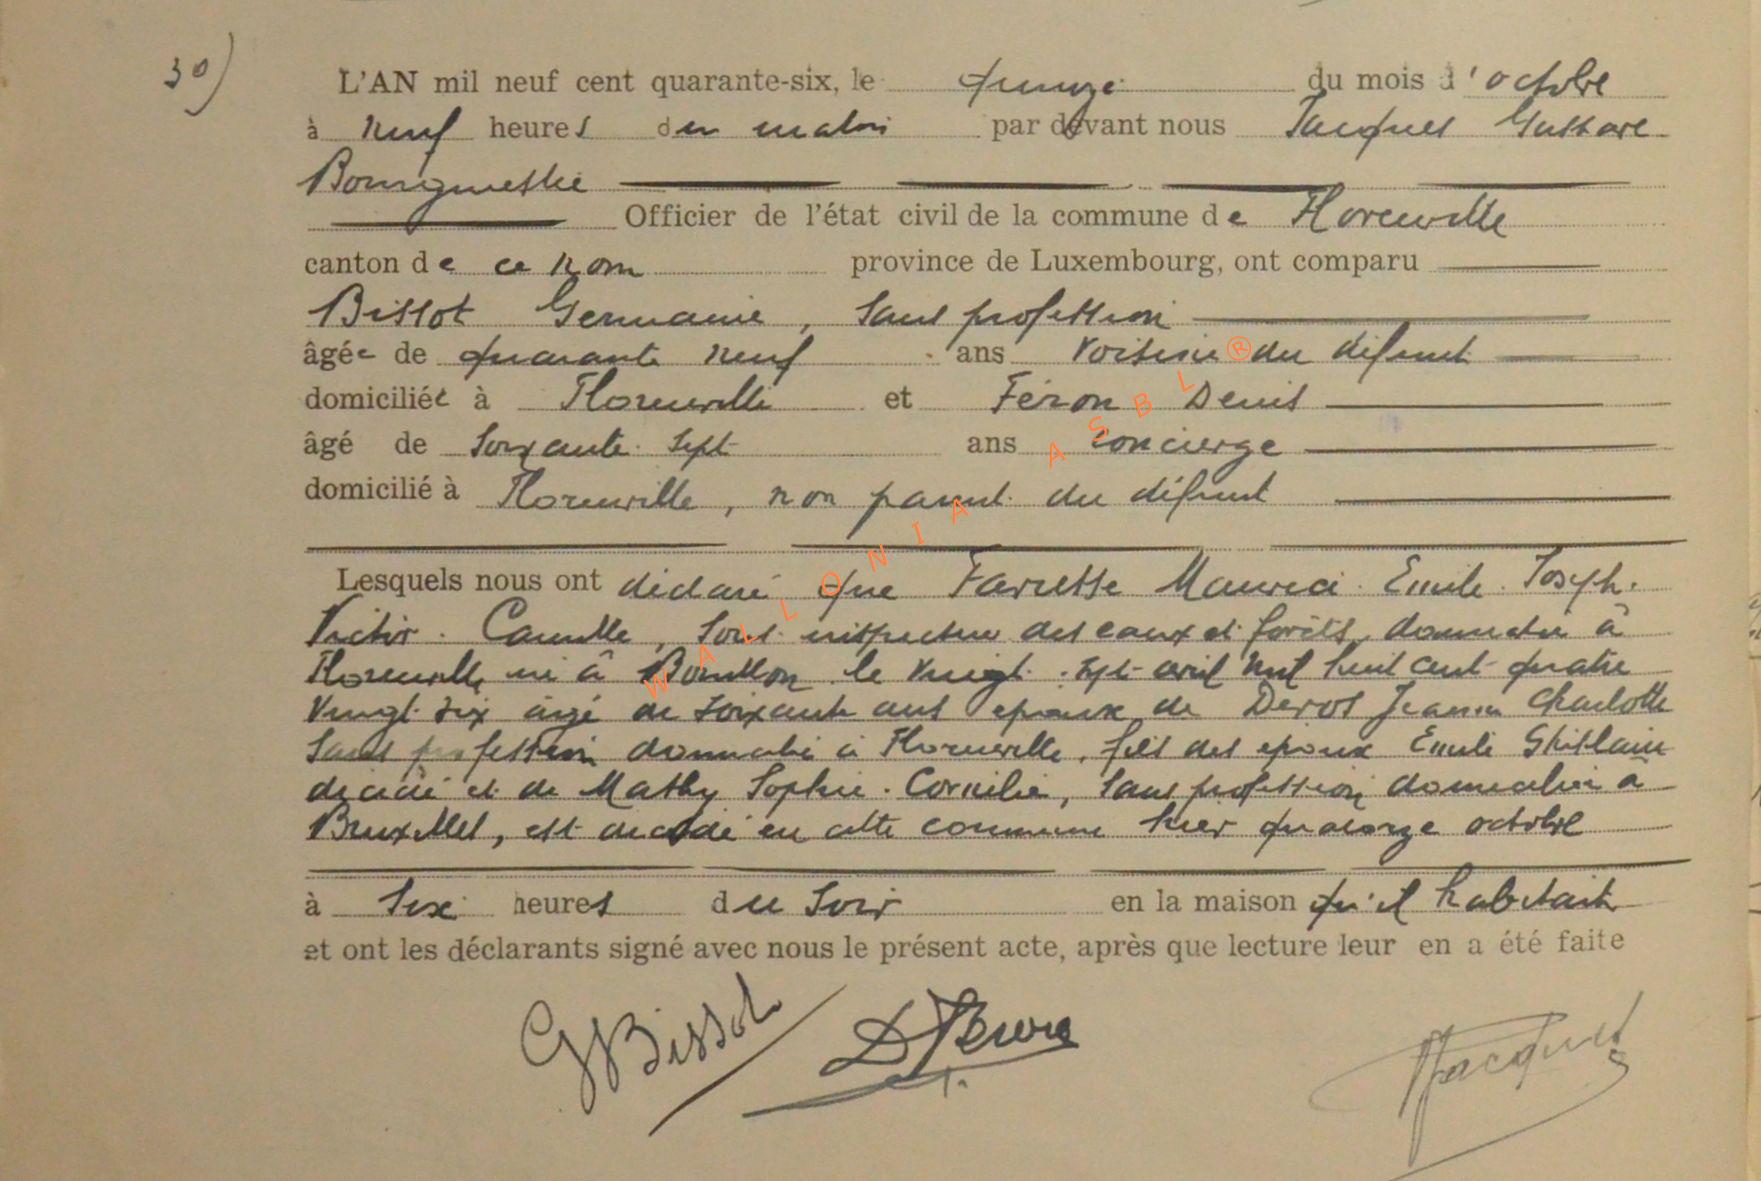 30)
L'AN mil neuf cent quarante-six, le quinze du mois d'octobre
à neuf heures du matin par devant nous Jacques Gustave
Bourgmestre
Officier de l'état civil de la commune de Florenville
canton de ce nom province de Luxembourg, ont comparu
Bissot Germaine, sans profession
âgée de quarante neuf ans voisine du défunt
domiciliée à Florenville et Féron Denis
âgé de soixante sept ans concierge
domicilié à Florenville, non parent du défunt
Lesquels nous ont déclaré que Maurice Emile Joseph
Victor Camille, sous inspecteur des eaux et forêts, domicilié à
Florenville né à Bouillon le vingt sept avril mil huit cent quatre
vingt six âgé de soixante ans époux de Devos Jeanne Charlotte
sans profession domiciliée à Florenville, fils des époux Emile Ghislain
décédé et de Mathy Sophie Cornélie, sans profession domiciliée à
Bruxelles, est décédé en cette commune hier quatorze octobre
à six heures du soir en la maison qu'il habitait
et ont les déclarants signé avec nous le présent acte, après que lecture leur en a été faite
GBissot
Jacques
WALLONIA ASBL ®